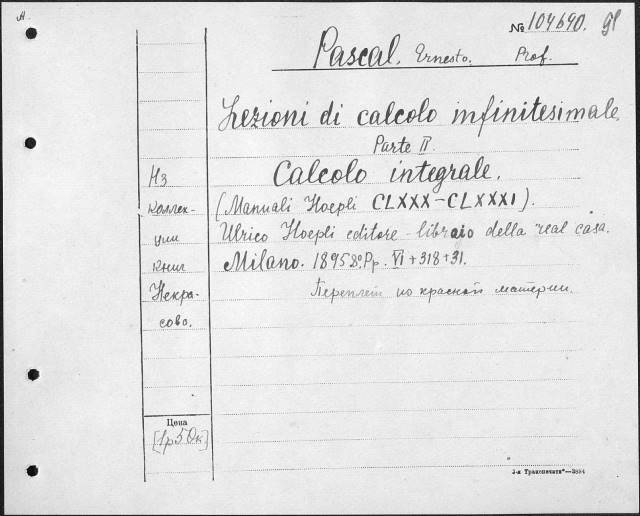 А.
№ 104690. 9f
Pascal. Ernesto. Prof.
Lezioni di calcolo infinitesimale.
Parte II.
Calcolo integrale.
(Manuali Hoepli CLXXX-CLXXXI).
Ulrico Hoepli editore-libraio della real casa.
Milano. 1895 8º. Pp. VI+318+31.
Переплет из красной материи.
Из
коллек-
ции
книг
Некра-
сова.
Цена
[1р50к]
3-я Транспечать"—3854